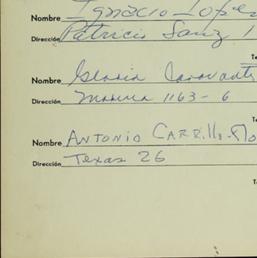 Nombre Ignacio Lopez
Dirección Patricio Sanz 1
Te
Nombre Gloria
Dirección 1163-6
Te
Nombre ANTONIO CARRILLO FLO
Dirección Texas 26